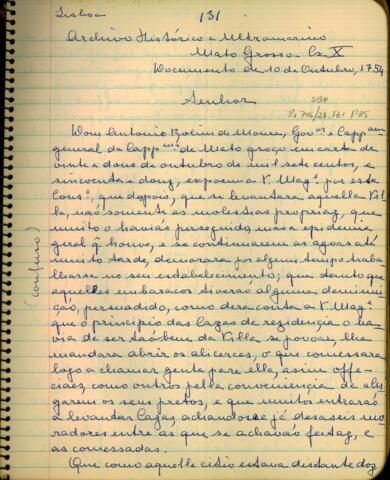 Lisboa
131
Archivo Histórico e Ultramarino
Mato Grosso Cx X
Documento de 10 de Outubro, 1754
Senhor
SBH
Pi 746/28.131 P 85
Dom Antonio Rolim de Moura, Gov.or e Capp.am
general da Capp.nia de Mato groço em carta de
vinte e dous de outubro de mil sete centos, e
sincoenta e dous, expoem a V. Mag.e por este
Cons.o, que depois, que se levantara aquella Vil-
la, não somente as molestias propriaz, que
muito o havião perseguido, mas a epidemia
geral q̃ houve, e se continuarem as agoas até
muito tarde, demorara por algum tempo traba-
lharse no seu establecimento; que tanto que
aquelles embaracos tiverão alguma deminui-
ção, persuadido, como dera conta a V. Mag.e
que o principio das Cazas de rezidencia o ha-
via de ser tãobem da Villa se povoar, lhe
mandara abrir os alicerces, o que comessara
logo a chamar gente para ella, assim offe-
ciaes, como outros pella conveniencia de alu-
garem os seus pretos, e que muitos entrarão
a levantar Cazas, achandose já desaseis mo-
radores entre as que se achavão feitas, e
as comessadas.
(Que como aquelle citio estava distante doz
(confuso)